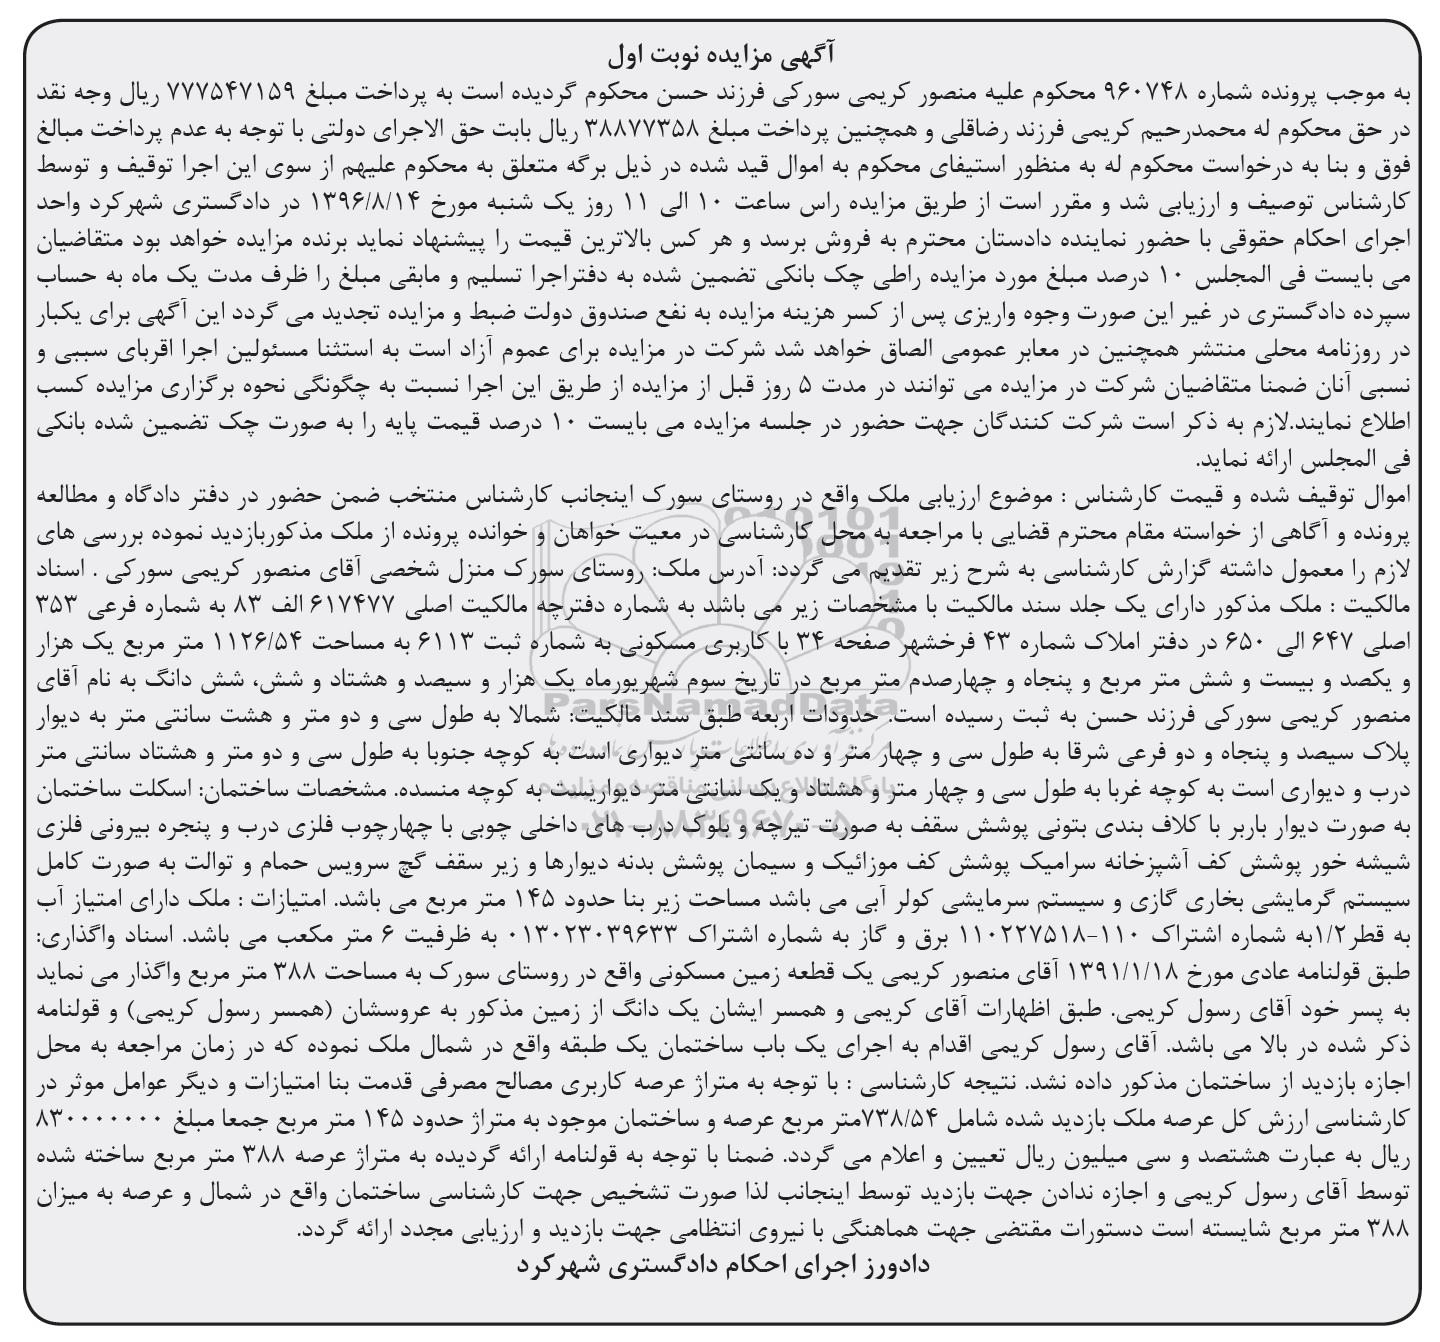 آگهی مزایده نوبت اول
به موجب پرونده شماره ۹۶۰۷۴۸ محکوم علیه منصور کریمی سورکی فرزند حسن محکوم گردیده است به پرداخت مبلغ ۷۷۷۵۴۷۱۵۹ ریال وجه نقد
در حق محکوم له محمدرحیم کریمی فرزند رضاقلی و همچنین پرداخت مبلغ ۳۸۸۷۷۳۵۸ ریال بابت حق الاجرای دولتی با توجه به عدم پرداخت مبالغ
فوق و بنا به درخواست محکوم له به منظور استیفای محکوم به اموال قید شده در ذیل برگه متعلق به محکوم علیهم از سوی این اجرا توقیف و توسط
کارشناس توصیف و ارزیابی شد و مقرر است از طریق مزایده راس ساعت ۱۰ الی ۱۱ روز یک شنبه مورخ ۱۳۹۶/۸/۱۴ در دادگستری شهرکرد واحد
اجرای احکام حقوقی با حضور نماینده دادستان محترم به فروش برسد و هر کس بالاترین قیمت را پیشنهاد نماید برنده مزایده خواهد بود متقاضیان
می بایست فی المجلس ۱۰ درصد مبلغ مورد مزایده راطی چک بانکی تضمین شده به دفتراجرا تسلیم و مابقی مبلغ را ظرف مدت یک ماه به حساب
سپرده دادگستری در غیر این صورت وجوه واریزی پس از کسر هزینه مزایده به نفع صندوق دولت ضبط و مزایده تجدید می گردد این آگهی برای یکبار
در روزنامه محلی منتشر همچنین در معابر عمومی الصاق خواهد شد شرکت در مزایده برای عموم آزاد است به استثنا مسئولین اجرا اقربای سببی و
نسبی آنان ضمنا متقاضیان شرکت در مزایده می توانند در مدت ۵ روز قبل از مزایده از طریق این اجرا نسبت به چگونگی نحوه برگزاری مزایده کسب
اطلاع نمایند.لازم به ذکر است شرکت کنندگان جهت حضور در جلسه مزایده می بایست ۱۰ درصد قیمت پایه را به صورت چک تضمین شده بانکی
فی المجلس ارائه نماید.
اموال توقیف شده و قیمت کارشناس : موضوع ارزیابی ملک واقع در روستای سورک اینجانب کارشناس منتخب ضمن حضور در دفتر دادگاه و مطالعه
پرونده و آگاهی از خواسته مقام محترم قضایی با مراجعه به محل کارشناسی در معیت خواهان و خوانده پرونده از ملک مذکوربازدید نموده بررسی های
لازم را معمول داشته گزارش کارشناسی به شرح زیر تقدیم می گردد: آدرس ملک: روستای سورک منزل شخصی آقای منصور کریمی سورکی . اسناد
مالکیت : ملک مذکور دارای یک جلد سند مالکیت با مشخصات زیر می باشد به شماره دفترچه مالکیت اصلی ۶۱۷۴۷۷ الف ۸۳ به شماره فرعی ۳۵۳
اصلی ۶۴۷ الی ۶۵۰ در دفتر املاک شماره ۴۳ فرخشهر صفحه ۳۴ با کاربری مسکونی به شماره ثبت ۶۱۱۳ به مساحت ۱۱۲۶/۵۴ متر مربع یک هزار
و یکصد و بیست و شش متر مربع و پنجاه و چهارصدم متر مربع در تاریخ سوم شهریورماه یک هزار و سیصد و هشتاد و شش، شش دانگ به نام آقای
منصور کریمی سورکی فرزند حسن به ثبت رسیده است. حدودات اربعه طبق سند مالکیت: شمالا به طول سی و دو متر و هشت سانتی متر به دیوار
پلاک سیصد و پنجاه و دو فرعی شرقا به طول سی و چهار متر و ده سانتی متر دیواری است به کوچه جنوبا به طول سی و دو متر و هشتاد سانتی متر
درب و دیواری است به کوچه غربا به طول سی و چهار متر و هشتاد و یک سانتی متر دیواریست به کوچه منسده. مشخصات ساختمان: اسکلت ساختمان
به صورت دیوار باربر با کلاف بندی بتونی پوشش سقف به صورت تیرچه و بلوک درب های داخلی چوبی با چهارچوب فلزی درب و پنجره بیرونی فلزی
شیشه خور پوشش کف آشپزخانه سرامیک پوشش کف موزائیک و سیمان پوشش بدنه دیوارها و زیر سقف گچ سرویس حمام و توالت به صورت کامل
سیستم گرمایشی بخاری گازی و سیستم سرمایشی کولر آبی می باشد مساحت زیر بنا حدود ۱۴۵ متر مربع می باشد. امتیازات : ملک دارای امتیاز آب
به قطر۱/۲به شماره اشتراک ۱۱۰-۱۱۰۲۲۷۵۱۸ برق و گاز به شماره اشتراک ۰۱۳۰۲۳۰۳۹۶۳۳ به ظرفیت ۶ متر مکعب می باشد. اسناد واگذاری:
طبق قولنامه عادی مورخ ۱۳۹۱/۱/۱۸ آقای منصور کریمی یک قطعه زمین مسکونی واقع در روستای سورک به مساحت ۳۸۸ متر مربع واگذار می نماید
به پسر خود آقای رسول کریمی. طبق اظهارات آقای کریمی و همسر ایشان یک دانگ از زمین مذکور به عروسشان (همسر رسول کریمی) و قولنامه
ذکر شده در بالا می باشد. آقای رسول کریمی اقدام به اجرای یک باب ساختمان یک طبقه واقع در شمال ملک نموده که در زمان مراجعه به محل
اجازه بازدید از ساختمان مذکور داده نشد. نتیجه کارشناسی : با توجه به متراژ عرصه کاربری مصالح مصرفی قدمت بنا امتیازات و دیگر عوامل موثر در
کارشناسی ارزش کل عرصه ملک بازدید شده شامل ۷۳۸/۵۴متر مربع عرصه و ساختمان موجود به متراژ حدود ۱۴۵ متر مربع جمعا مبلغ ۸۳۰۰۰۰۰۰۰
ریال به عبارت هشتصد و سی میلیون ریال تعیین و اعلام می گردد. ضمنا با توجه به قولنامه ارائه گردیده به متراژ عرصه ۳۸۸ متر مربع ساخته شده
توسط آقای رسول کریمی و اجازه ندادن جهت بازدید توسط اینجانب لذا صورت تشخیص جهت کارشناسی ساختمان واقع در شمال و عرصه به میزان
۳۸۸ متر مربع شایسته است دستورات مقتضی جهت هماهنگی با نیروی انتظامی جهت بازدید و ارزیابی مجدد ارائه گردد.
دادورز اجرای احکام دادگستری شهرکرد
ParsNamadData
پایگاه اطلاع رسانی مناقصه و مزایده
۰۲۱-۸۸۳۴۹۶۷۰-۵